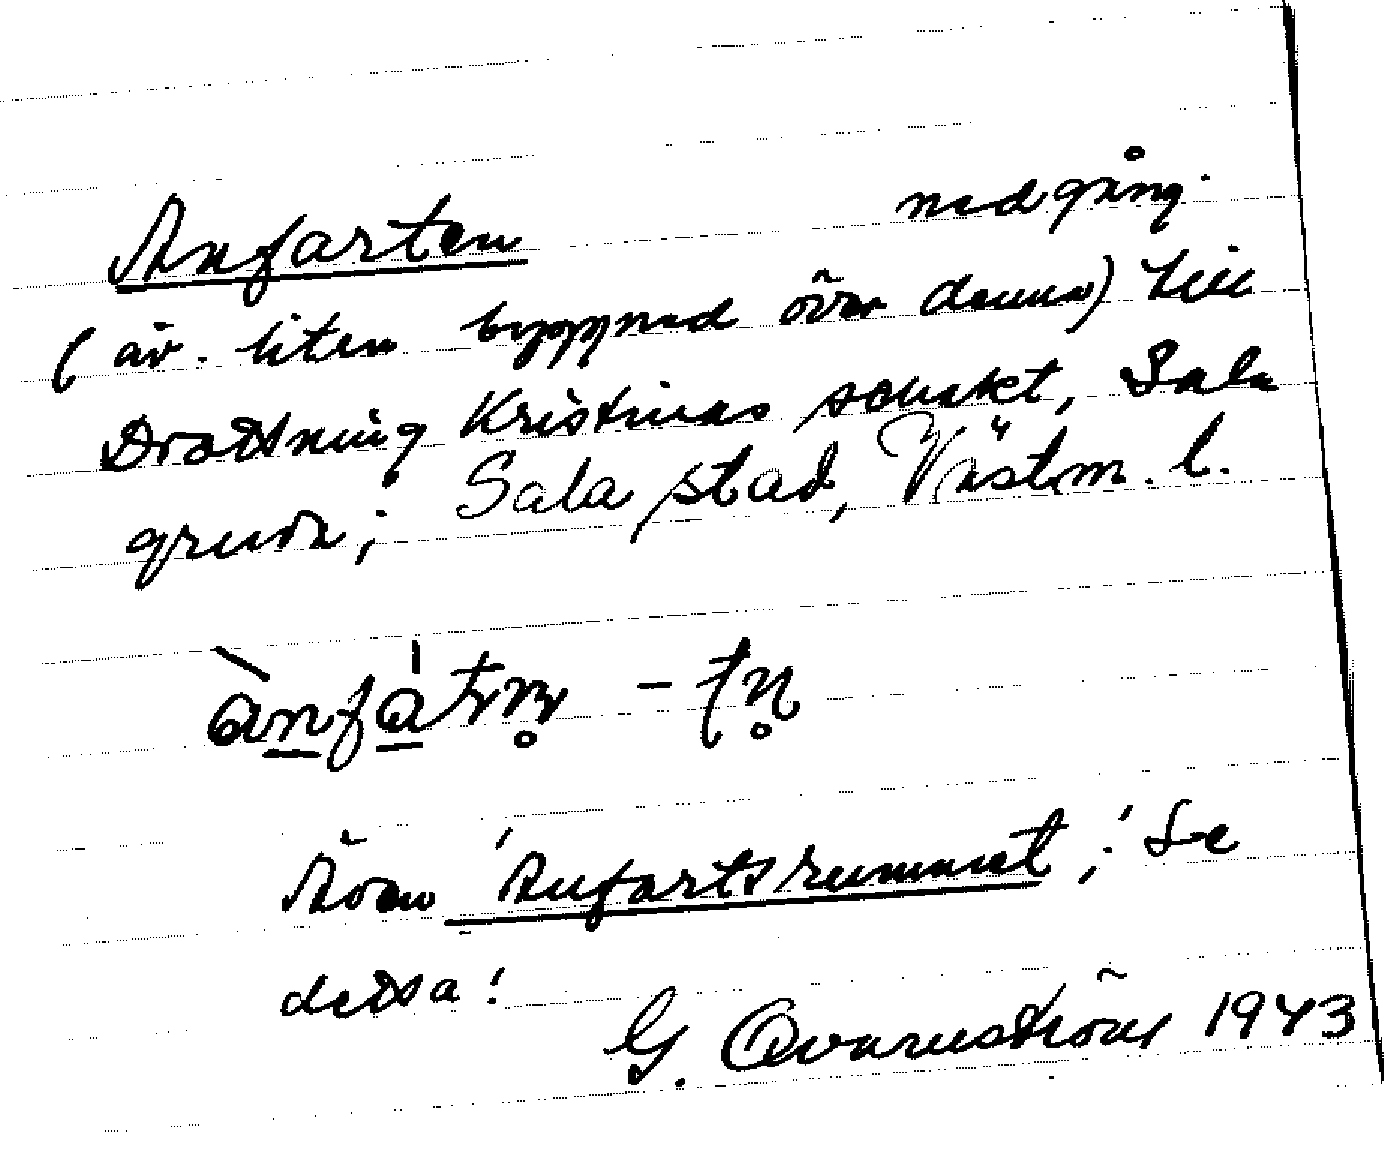 Anfarten nedgång
(äv. liten byggnad över denna) till
Drottning Kristinas schakt, Sala
gruva; Sala stad, Västm. l.
Även 'Anfartsrummet;' Se
detta!
G. Qvarnström 1943